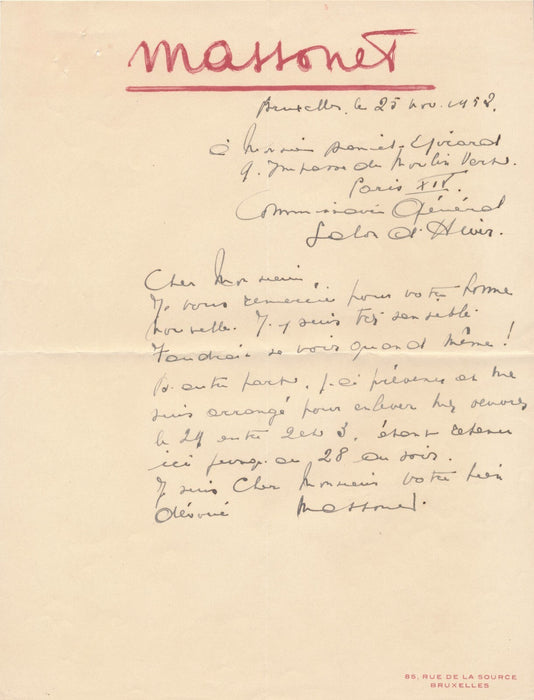 Massonet
Bruxelles, le 25 nov. 1952.
à Monsieur
9. Impasse du Moulin Vert.
Paris XIV.
Commissaire Général
Salon d'Hiver.
Cher Monsieur,
Je vous remercie pour votre bonne
nouvelle. J'y suis très sensible.
Faudrait se voir quand même!
D'autre part, j'ai prévenu et me
suis arrangé pour enlever mes oeuvres
le 29 entre 2 et 3, étant retenu
ici jusqu'au 28 au soir.
Je suis Cher Monsieur votre bien
dévoué Massonet.
85, RUE DE LA SOURCE
BRUXELLES